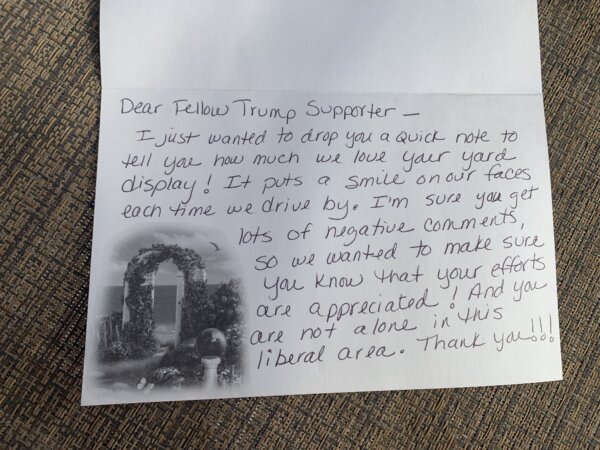 Dear Fellow Trump Supporter —
I just wanted to drop you a quick note to
tell you how much we love your yard
display! It puts a smile on our faces
each time we drive by. I'm sure you get
lots of negative comments,
so we wanted to make sure
you know that your efforts
are appreciated! And you
are not alone in this
liberal area. Thank you!!!